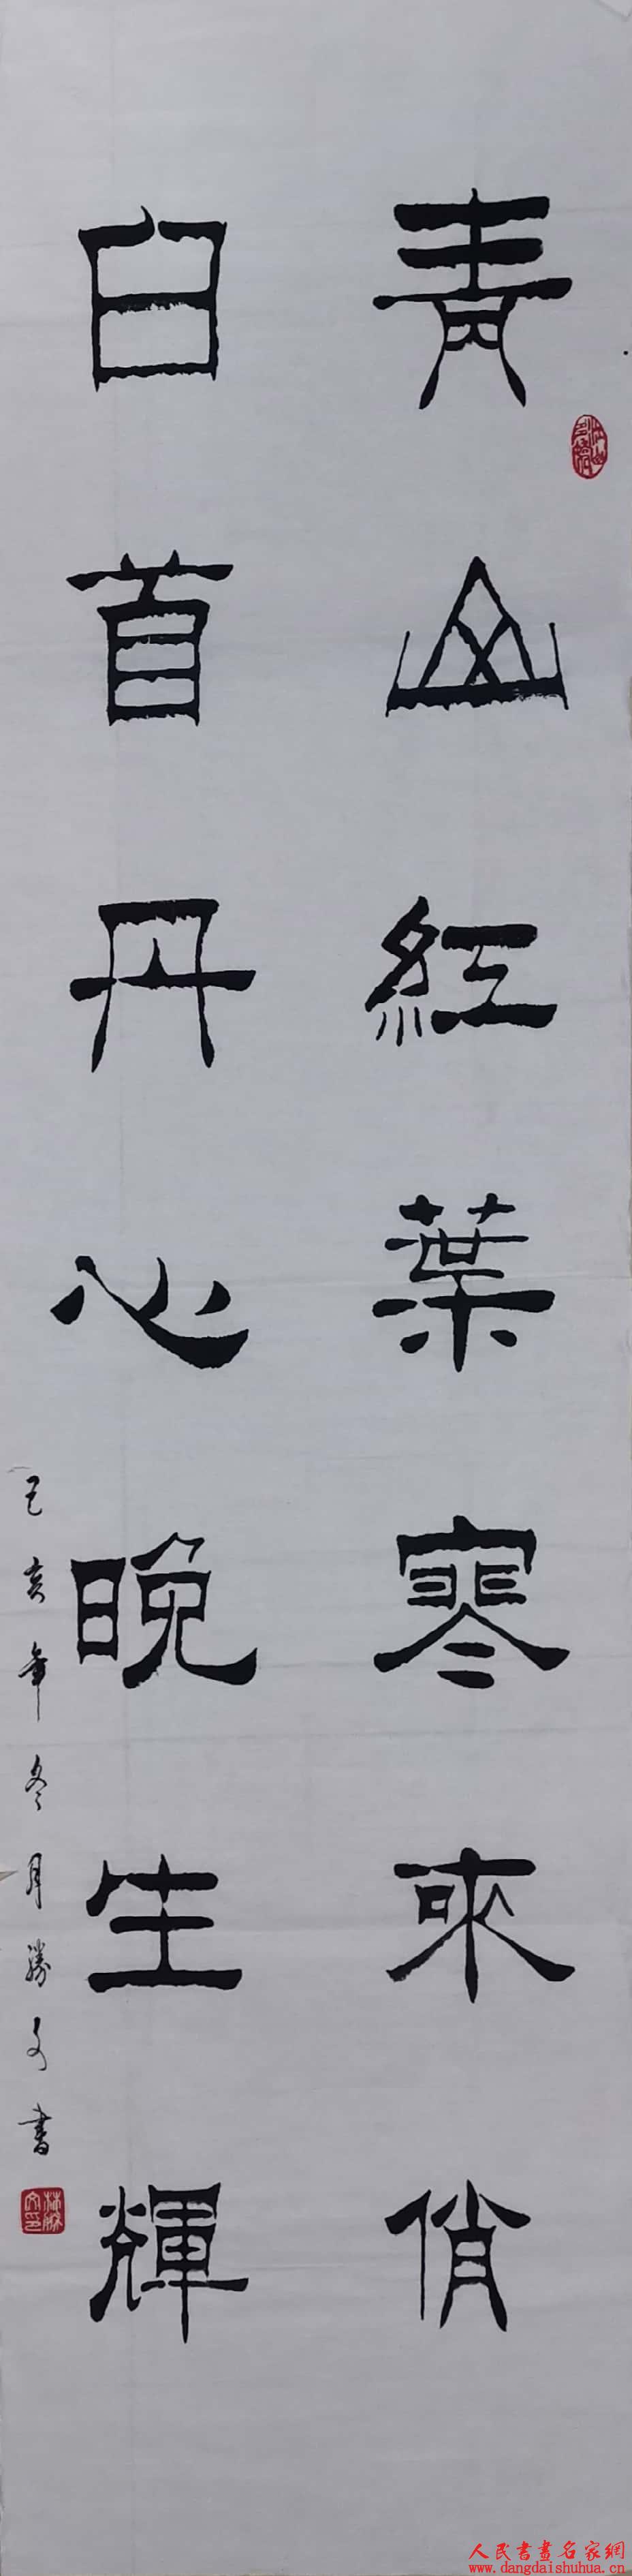 青山紅葉寒來俏
白首丹心晚生輝
己亥年冬月勝文書
林勝文印
人民書畫名家網
www.dangdaishuhua.cn